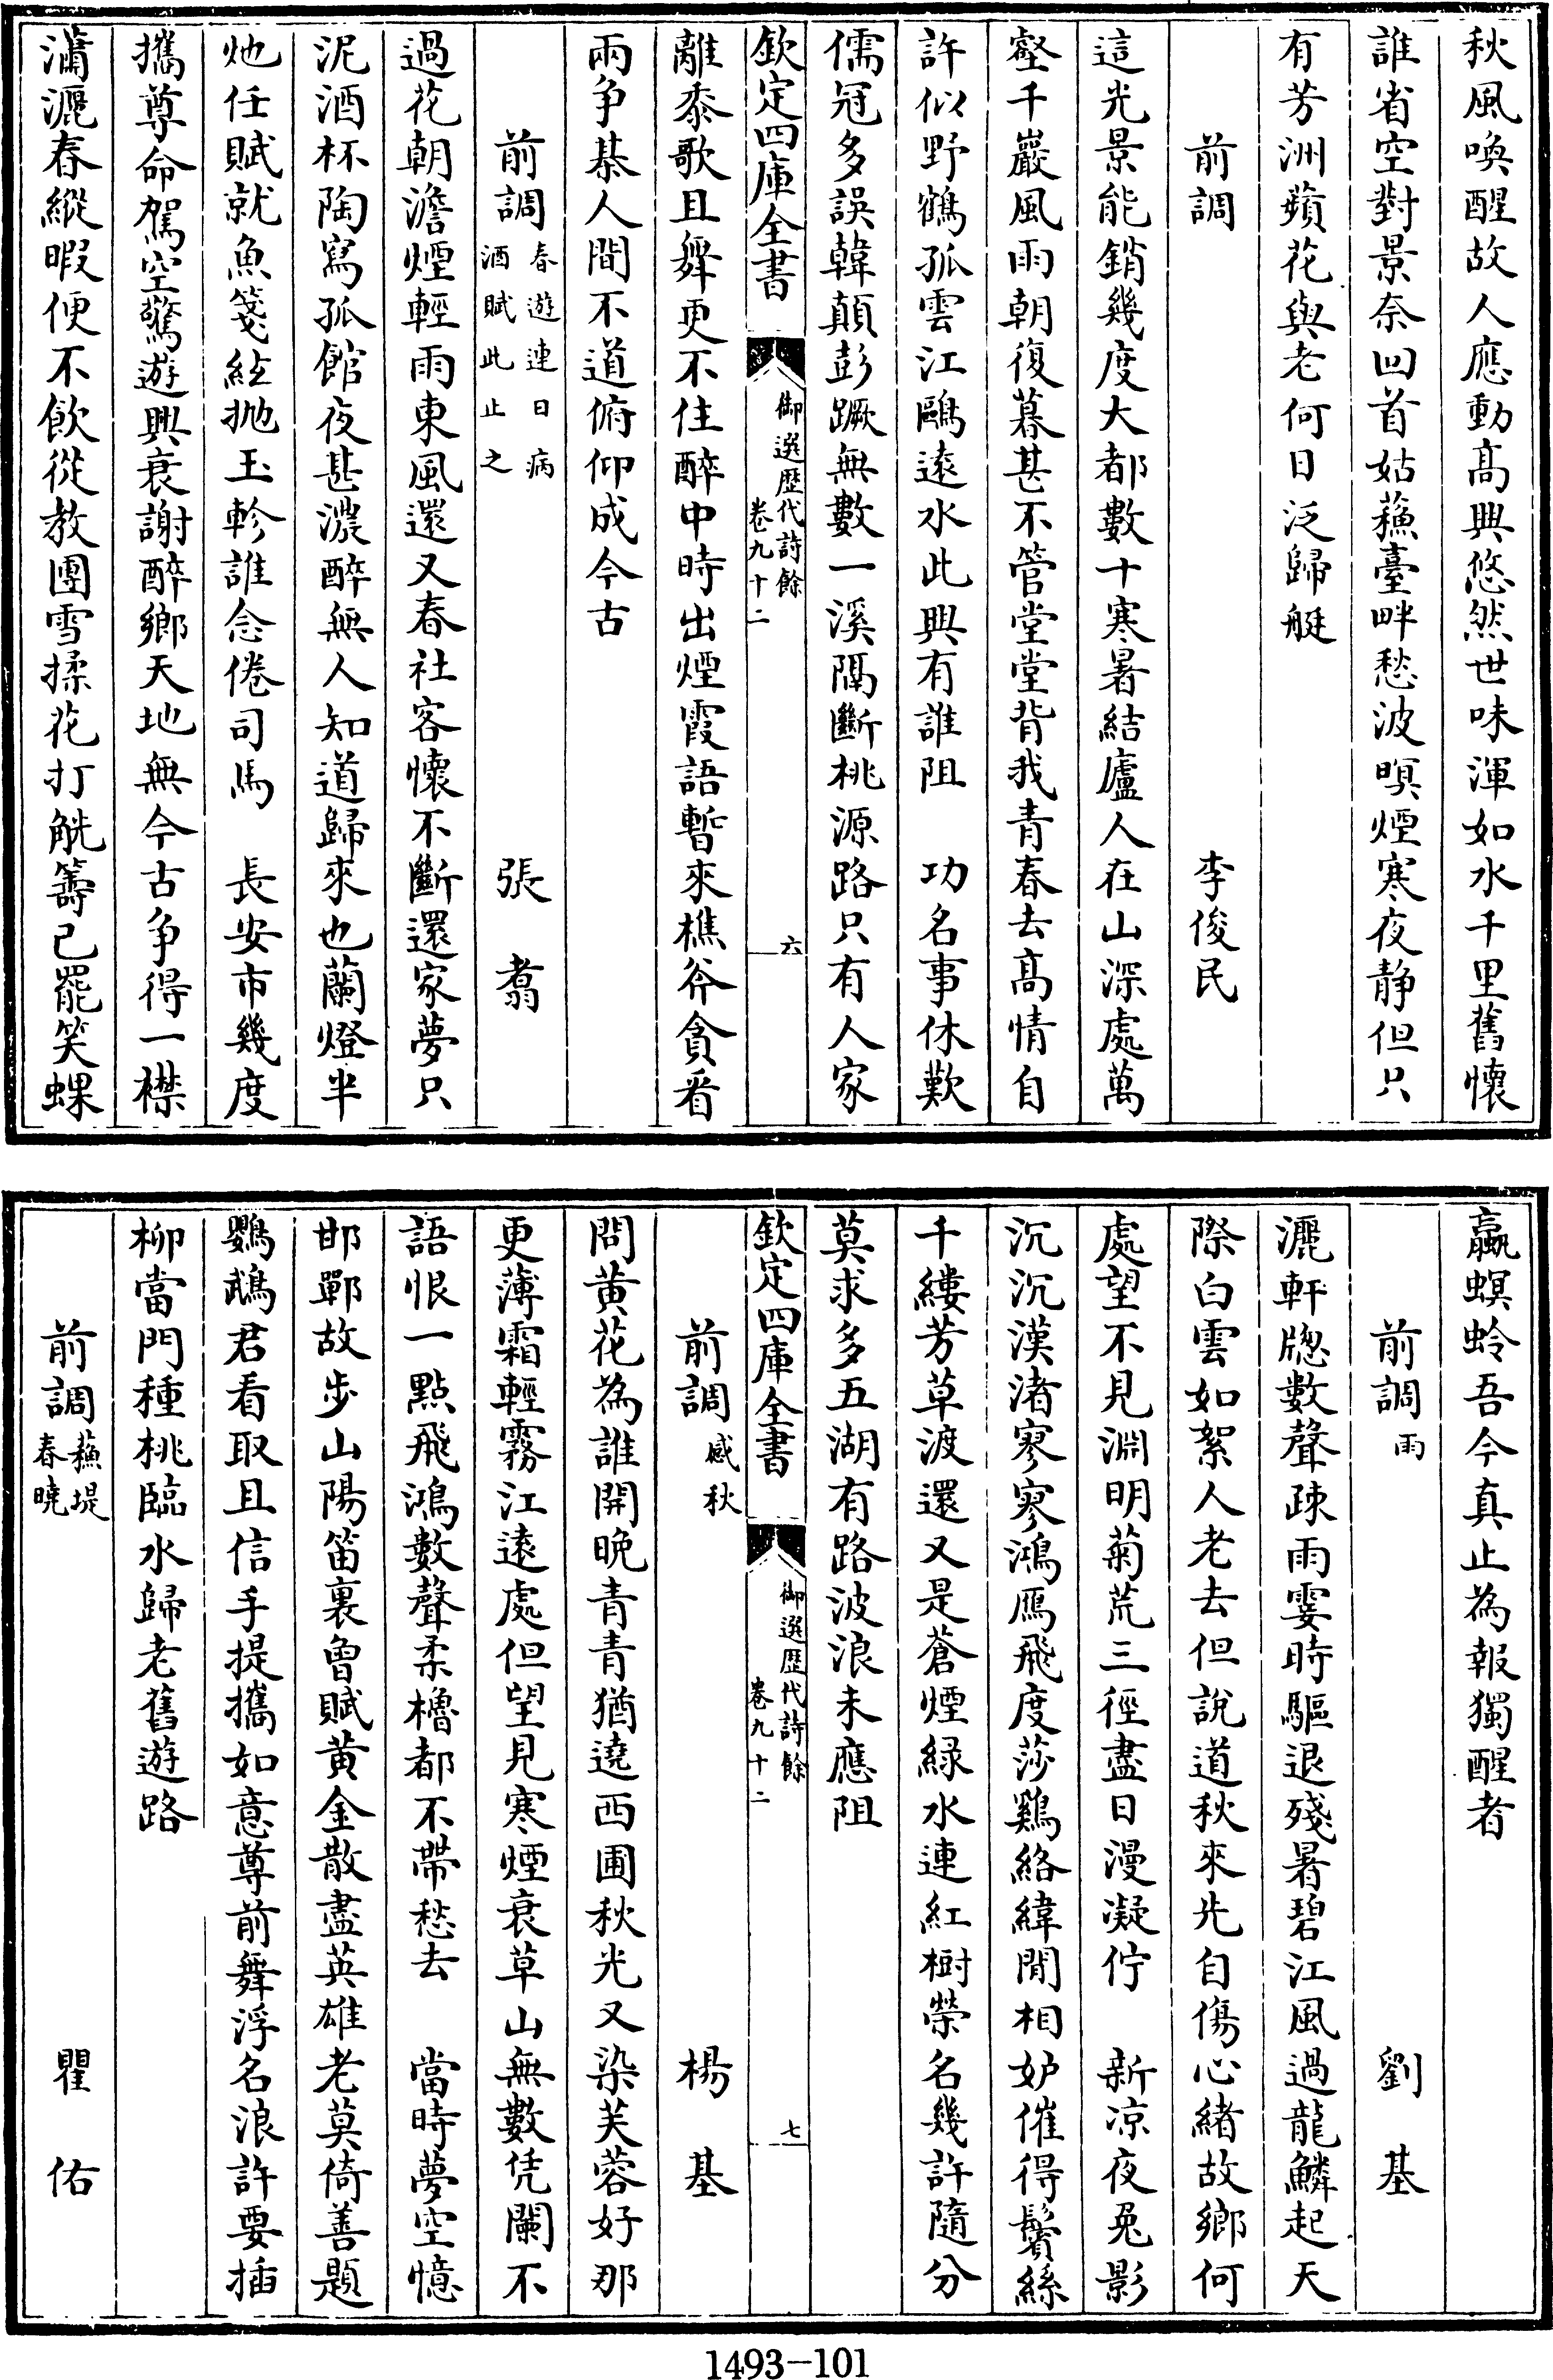 秋風喚醒故人應動髙興悠然世味渾如水千里舊懷
誰省空對景奈回首姑蘓臺畔愁波暝煙寒夜静但只
有芳洲蘋花與老何日泛歸艇
前調 李俊民
這光景能銷幾度大都數十寒暑結廬人在山深處萬
壑千巖風雨朝復暮甚不管堂堂背我青春去髙情自
許似野鶴孤雲江鷗遠水此興有誰阻 功名事休歎
儒冠多誤韓顛彭蹶無數一溪隔斷桃源路只有人家
欽定四庫全書 御選歴代詩餘 卷九十二 六
離黍歌且舞更不住醉中時出煙霞語暫來樵斧貪看
兩争棊人間不道俯仰成今古
前調 春遊連日病酒賦此止之 張翥
過花朝澹煙輕雨東風還又春社客懷不斷還家夢只
泥酒杯陶寫孤館夜甚濃醉無人知道歸來也蘭燈半
灺任賦就魚箋絃抛玉軫誰念倦司馬 長安市幾度
攜尊命駕空驚遊興衰謝醉鄉天地無今古争得一襟
瀟灑春縱暇便不飲從教團雪揉花打觥籌已罷笑蜾
蠃螟蛉吾今真止為報獨醒者
前調 雨 劉基
灑軒牕數聲疎雨霎時驅退殘暑碧江風過龍鱗起天
際白雲如絮人老去但說道秋來先自傷心緒故鄉何
處望不見淵明菊荒三徑盡日漫凝佇 新凉夜兎影
沉沉漢渚寥寥鴻鴈飛度莎鷄絡緯閒相妒催得鬢絲
千縷芳草渡還又是蒼煙緑水連紅樹榮名幾許隨分
莫求多五湖有路波浪未應阻
欽定四庫全書 御選歴代詩餘 卷九十二 七
前調 感秋 楊基
問黄花為誰開晚青青猶遶西圃秋光又染芙蓉好那
更薄霜輕霧江遠處但望見寒煙衰草山無數凭闌不
語恨一點飛鴻數聲柔櫓都不帶愁去 當時夢空憶
邯鄲故步山陽笛裏曾賦黄金散盡英雄老莫倚善題
鸚鵡君看取且信手提攜如意尊前舞浮名浪許要插
柳當門種桃臨水歸老舊遊路
前調 蘓堤春曉 瞿佑
1493-101